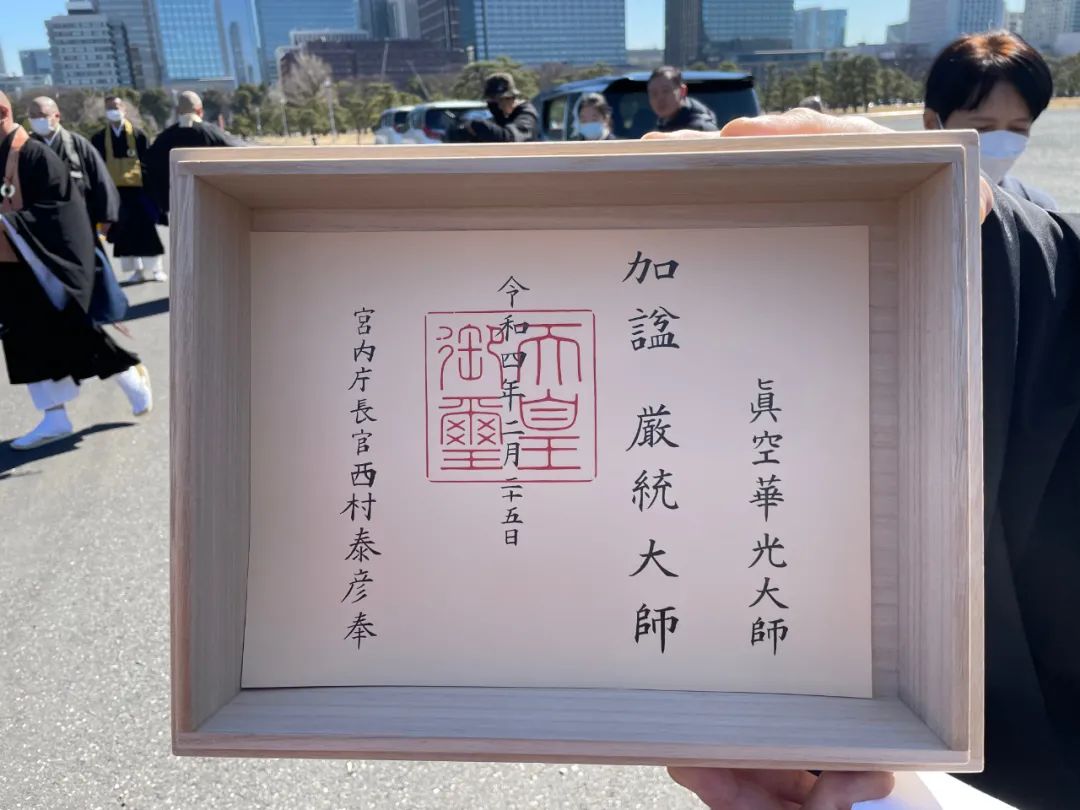 眞空華光大師
加諡 厳統大師
令和四年二月二十五日
天皇御璽
宮内庁長官西村泰彦奉